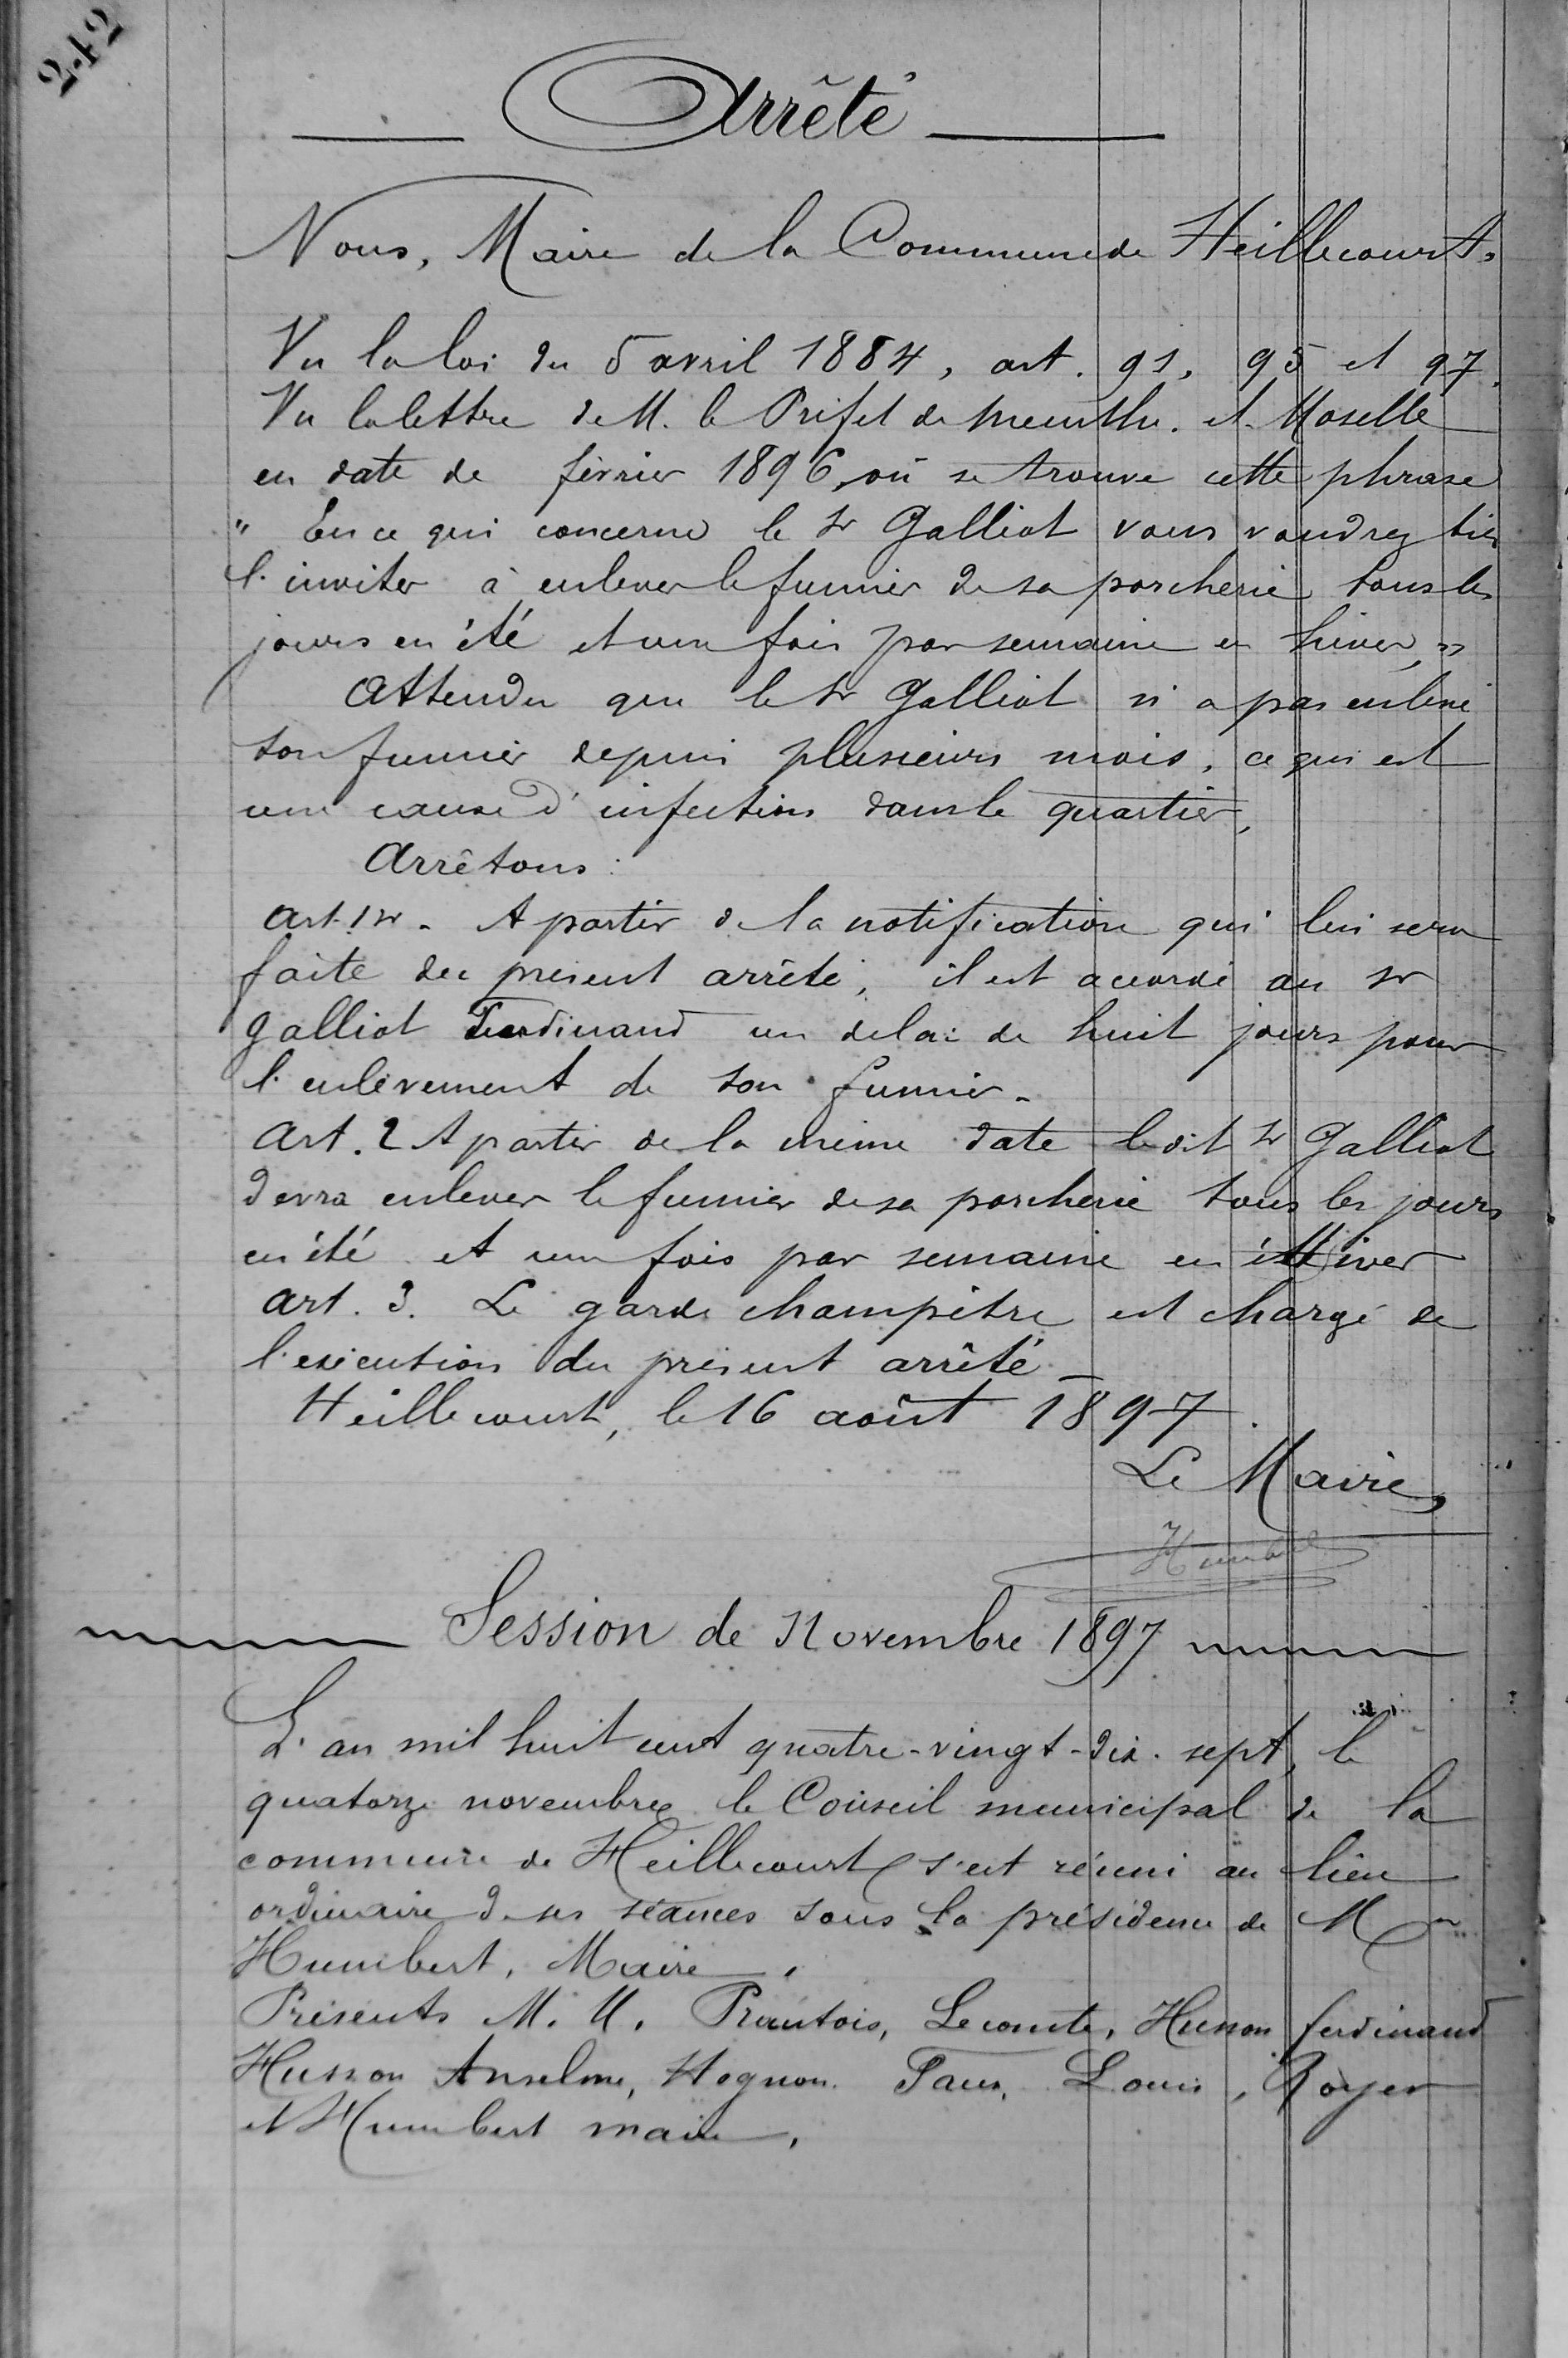 242
Arrêté
Nous, Maire de la Commune de Heillecourt,
Vu la loi du 5 avril 1884, art. 91, 95 et 97.
Vu la lettre de M. le Préfet de Meurthe. et. Moselle
en date de février 1896, où se trouve cette phrase
" En ce qui concerne le Sr Galliot vous voudrez bien
l'inviter à enlever le fumier de sa porcherie tous les
jours en été et une fois par semaine en hiver, "
Attendu que le Sr Galliot n'a pas enlevé
son fumier depuis plusieurs mois, ce qui est
une cause d'infection dans le quartier,
Arrêtons :
Art. 1er. A partir de la notification qui lui sera
faite du présent arrêté, il est accordé au Sr
Galliot Ferdinand un délai de huit jours pour
l'enlèvement de son fumier.
Art. 2 A partir de la même date ledit Sr Galliot
devra enlever le fumier de sa porcherie tous les jours
en été et une fois par semaine en hiver
Art. 3. Le garde champêtre est chargé de
l'exécution du présent arrêté
Heillecourt, le 16 août 1897.
Le Maire,
Humbert
Session de Novembre 1897
L'an mil huit cent quatre-vingt-dix-sept, le
quatorze novembre le Conseil municipal de la
commune de Heillecourt s'est réuni au lieu
ordinaire de ses séances sous la présidence de M
Humbert, Maire.
Présents M. M. Prautois, Lecomte, Husson ferdinand
Husson Anselme, Hognon. Louis, Royer
et Humbert maire.